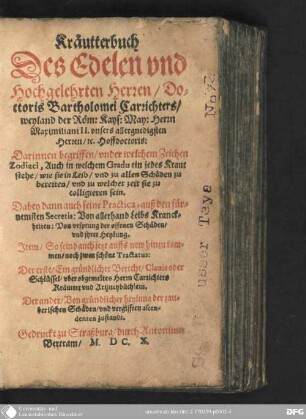 Kräutterbuch
Des Edelen vnd
Hochgelehrten Herren / Do-
ctoris Bartholomei Carrichters /
weyland der Röm: Kays: May: Herrn
Maximiliani II. vnsers allergnedigsten
Herrn / ec. Hoffdoctoris:
Darinnen begriffen / vnder welchem Zeichen
Zodiaci, Auch in welchem Gradu ein jedes Kraut
stehe / wie sie in Leib / vnd zu allen Schäden zu
bereiten / vnd zu welcher zeit sie zu
colligieren sein.
Dabey dann auch seine Practica, auß den für-
nemsten Secretis: Von allerhand Leibs Kranck-
heiten: Von vrsprung der offenen Schäden /
vnd jhrer Heylung.
Item / So seind auch jetzt auffs new hinzu kom-
men / noch zwen schöne Tractatus:
Der erste / Ein gründlicher Bericht / Clauis oder
Schlüssel vber obgemeltes Herrn Carrichters
Kräuter vnd Artzneybüchlein.
Der ander / Von gründlicher heylung der zau-
berischen Schäden / vnd vergifften
zustandt.
Gedruckt zu Straßburg / durch Antonium
Bertram / M. DC. X.